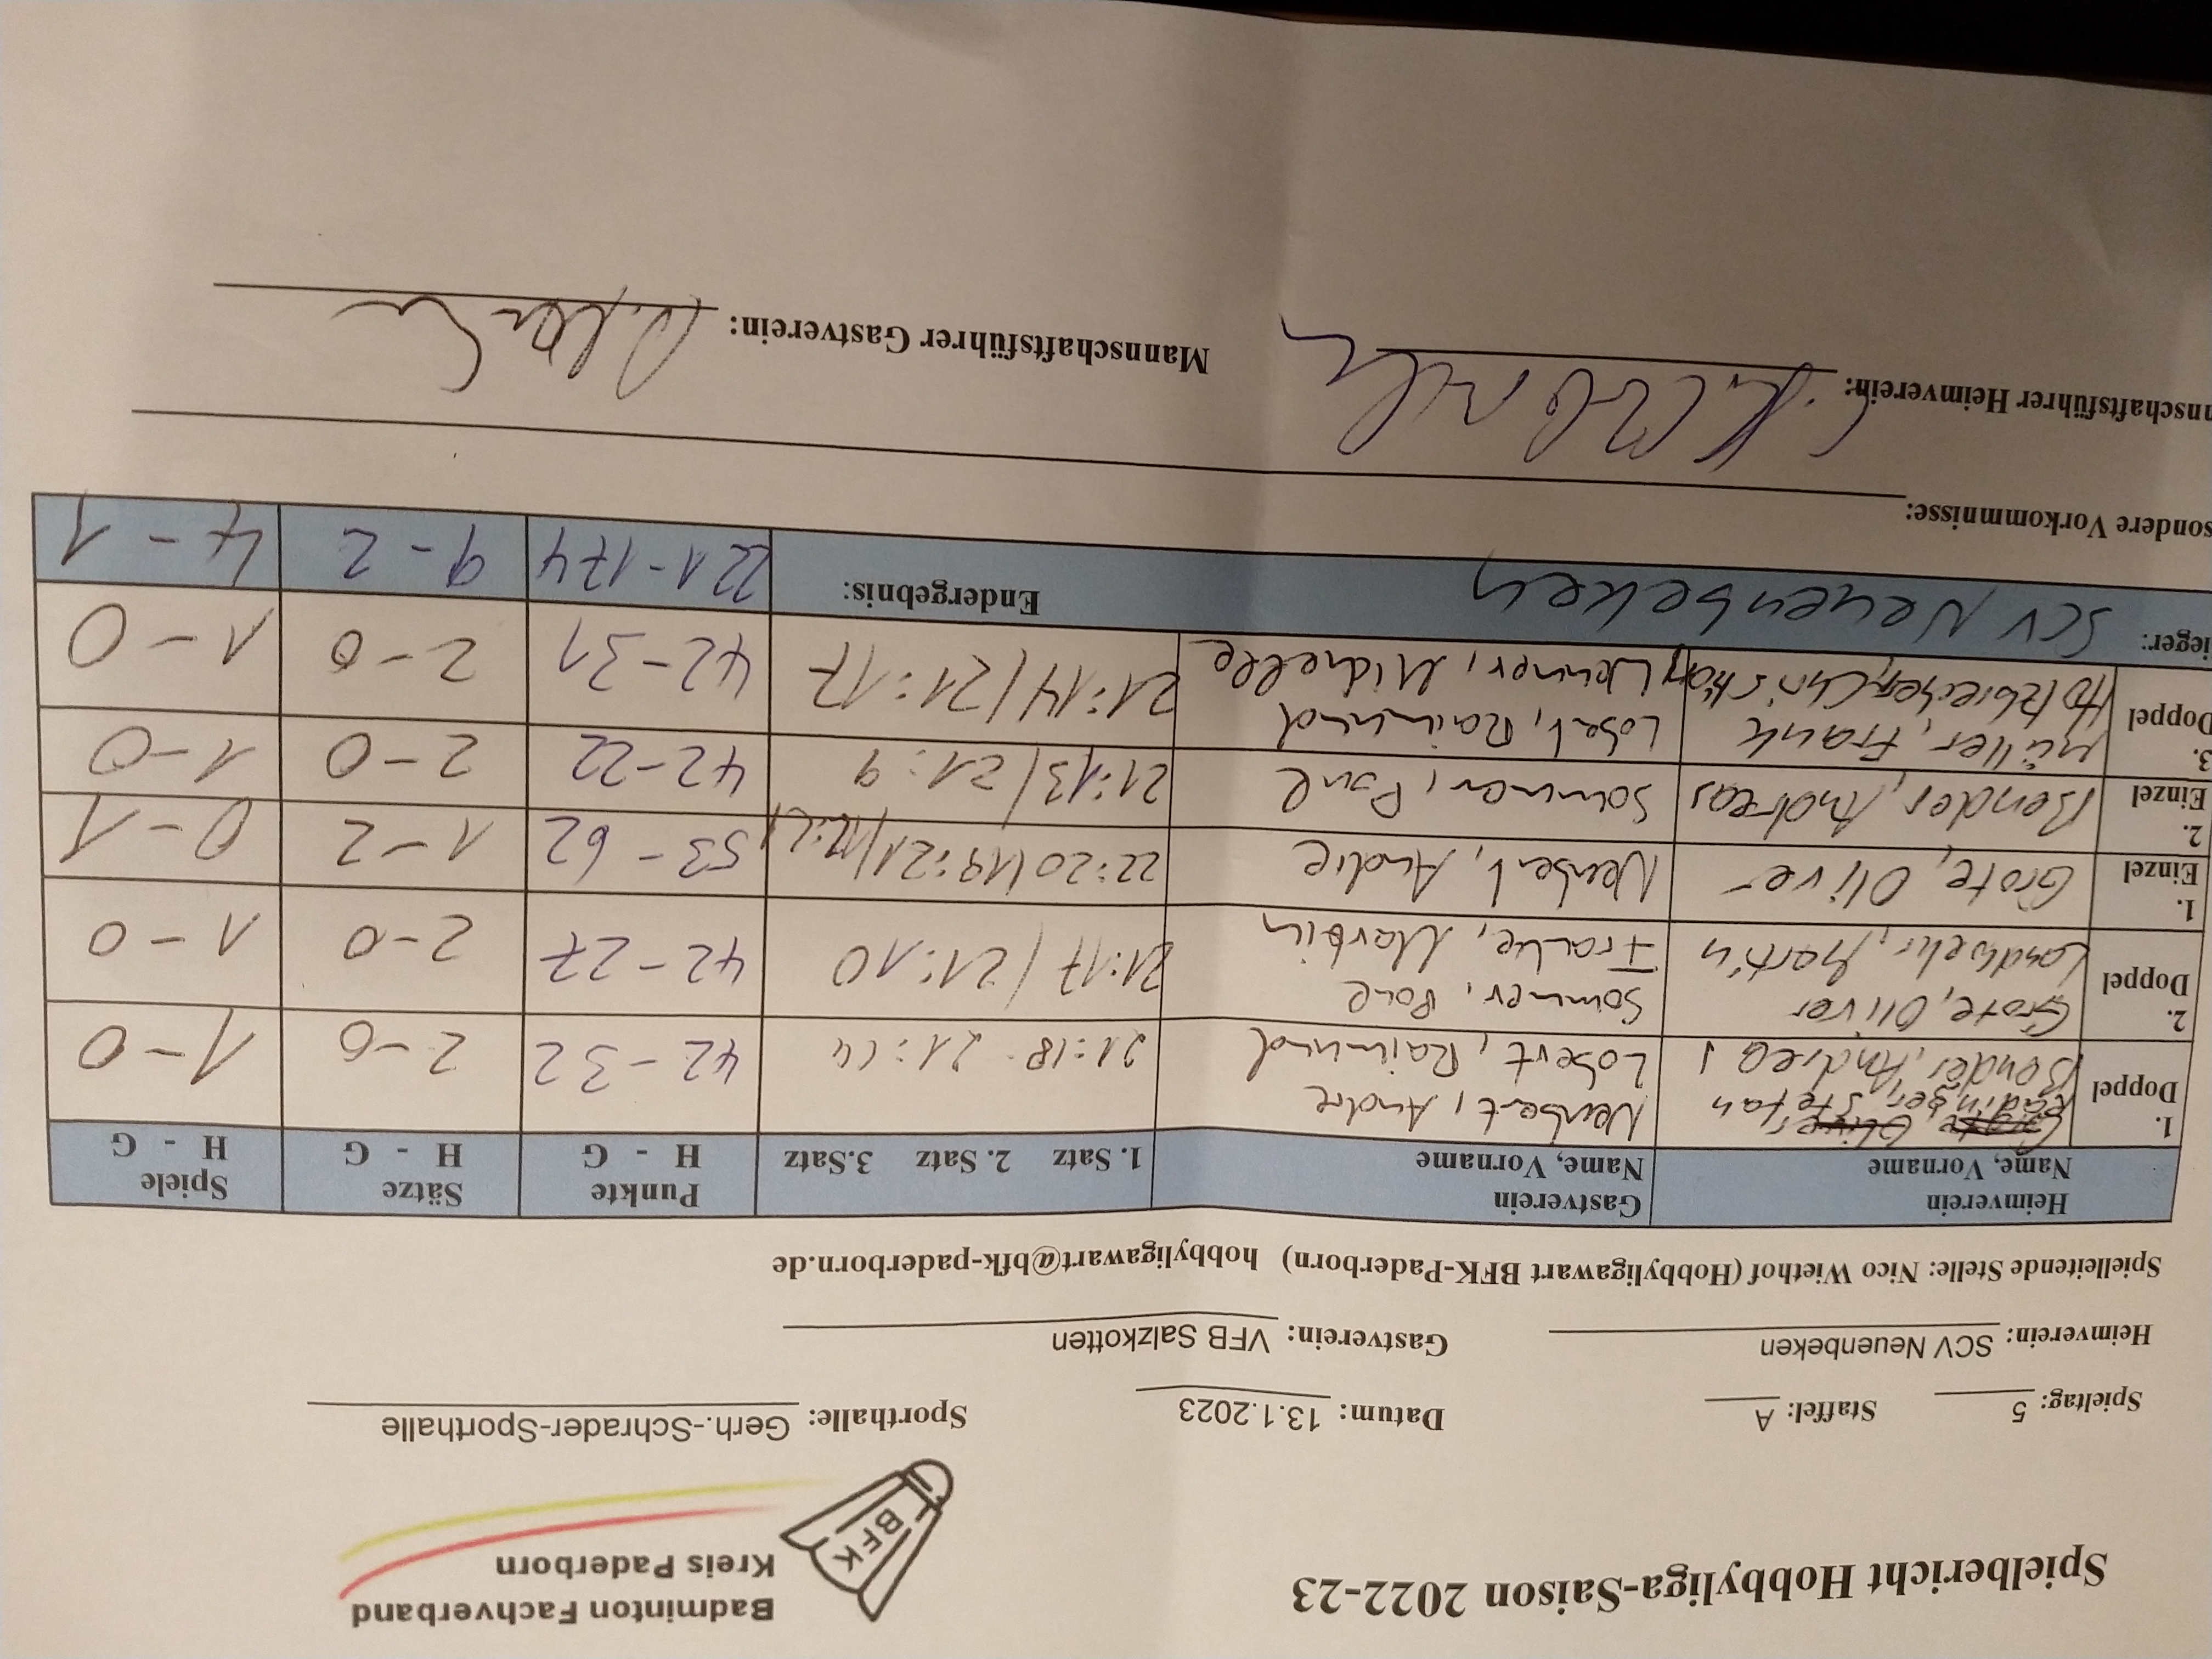 Spielbericht Hobbyliga-Saison 2022-23
Badminton Fachverband
Kreis Paderborn
BFK
Spieltag: 5 Staffel: A Datum: 13.1.2023 Sporthalle: Gerh.-Schrader-Sporthalle
Heimverein: SCV Neuenbeken Gastverein: VFB Salzkotten
Spielleitende Stelle: Nico Wiethof (Hobbyligawart BFK-Paderborn) hobbyligawart@bfk-paderborn.de
Heimverein Gastverein Punkte Sätze Spiele
Name, Vorname Name, Vorname 1. Satz 2. Satz 3.Satz H - G H - G H - G
1. Grote, Oliver Neubert, Andre
Doppel Rädinger, Stefan
Bender, Andreas Losert, Raimund 21:18 21:14 42-32 2-0 1-0
2. Grote, Oliver Sommer, Paul
Doppel Landwehr, Martin Franke, Martin 21:17 / 21:10 42-27 2-0 1-0
1.
Einzel Grote, Oliver Neubert, Andre 22:20/19:21/12:21 53-62 1-2 0-1
2.
Einzel Bender, Andreas Sommer, Paul 21:13/21:9 42-22 2-0 1-0
3. Müller, Frank Losert, Raimund
Doppel Holzbrecher, Christian Wenner, Michelle 21:14/21:17 42-31 2-0 1-0
ieger: SCV Neuenbeken Endergebnis: 221-174 9-2 4-1
sondere Vorkommnisse:
nschaftsführer Heimverein: Mannschaftsführer Gastverein: